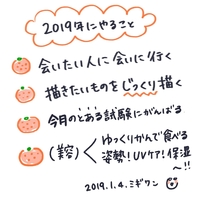 2019年にやること
会いたい人に会いに行く
描きたいものをじっくり描く
今月のとある試験にがんばる
(美容)
ゆっくりかんで食べる
姿勢!UVケア!保湿
〜!!
2019.1.4.ミギワン